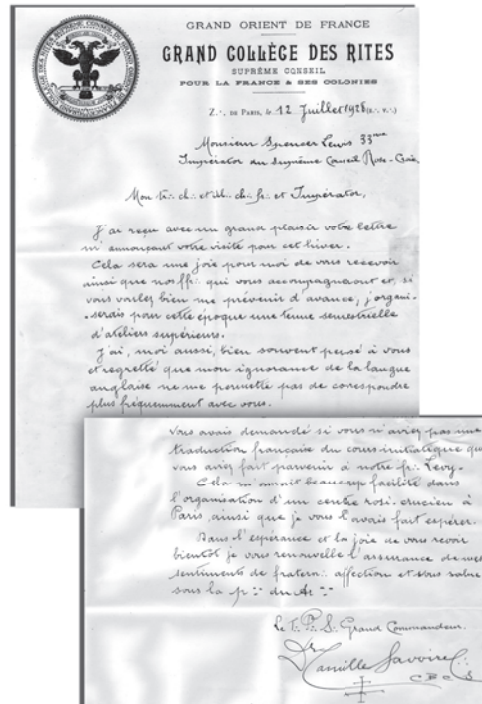 GRAND ORIENT DE FRANCE
GRAND COLLÈGE DES RITES
SUPRÊME CONSEIL
POUR LA FRANCE & SES COLONIES
Z∴ DE PARIS, le 12 Juillet 1928 (E∴ V∴)
Monsieur Spencer Lewis 33me
Impérator du Suprême Conseil Rose-Croix
Mon tr∴ ch∴ et ill∴ ch∴ fr∴ et Impérator,
J'ai reçu avec un grand plaisir votre lettre
m'annonçant votre visite pour cet hiver.
Cela sera une joie pour moi de vous recevoir
ainsi que nos ff∴ qui vous accompagnaont et, si
vous voulez bien me prévenir d'avance, j'organi-
-serais pour cette époque une tenue semestrielle
d'ateliers supérieurs.
J'ai, moi aussi, bien souvent pensé à vous
et regretté que mon ignorance de la langue
anglaise ne me permette pas de correspondre
plus fréquemment avec vous.
vous avais demandé si vous n'aviez pas une
traduction française du cours initiatique que
vous aviez fait parvenir à notre fr∴ Levy.
Cela m'aurait beaucoup facilité dans
l'organisation d'un centre rosi-crucien à
Paris, ainsi que je vous l'avais fait espérer.
Dans l'espérance et la joie de vous revoir
bientôt je vous renouvelle l'assurance de mes
sentiments de fratern∴ affection et vous salue
sous la
Le T∴ P∴ S∴ Grand Commandeur.
Dr Camille Savoire
C B C S